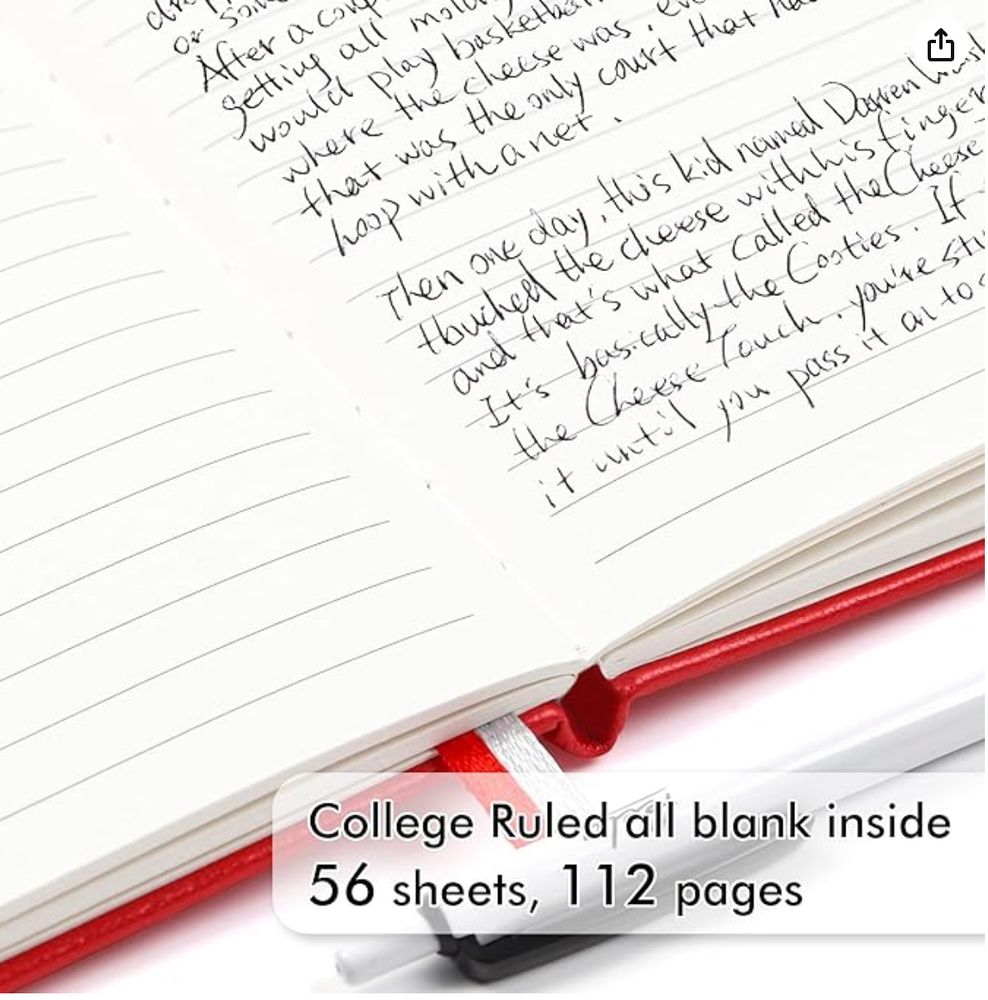 or some
After a coup
getting all mold
would play basketball
where the cheese was, eve
that was the only court that ha
hoop with a net.
Then one day, this kid named Darren
touched the cheese with his finger
and that's what called the Cheese
It's basically the Cooties. If
the Cheese Touch, you're stu
it until you pass it on to s
College Ruled all blank inside
56 sheets, 112 pages